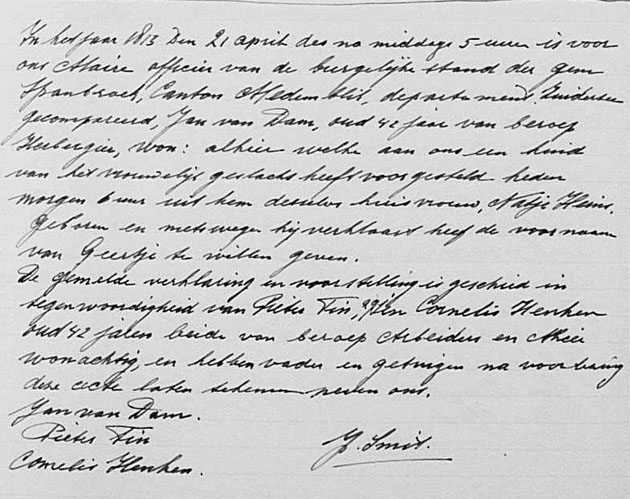 In het jaar 1813 Den 21 april des na middags 5 uuren is voor
ons Maire officier van de burgelijke stand der gem
Spanbroek, Canton Medemblik, departement Zuiderzee
gecompareerd, Jan van Dam, oud 42 jaar van beroep
Herbergier, won: alhier welke aan ons een kind
van het vrouwelijk geslacht heeft voorgesteld heden
morgen 6 uur uit hem deszelvs huisvrouw, Naatje Heins.
geboren en hij verklaart heef de voornaam
van Geertje te willen geven.
De gemelde verklaring en voorstelling is geschied in
tegenwoordigheid van Pieter Fin, en Cornelis Henken
oud 42 jaren beide van beroep Arbeiders en Alhier
wonachtig, en hebben vader en getuigen na voorlezing
deze acte laten tekenen neven ons.
Jan van Dam.
Pieter Fin
J. Smit.
Cornelis Henken.